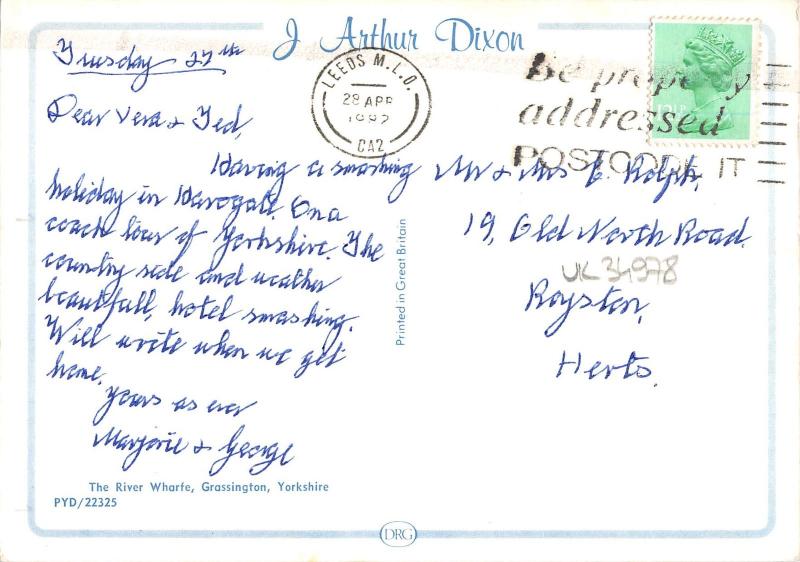 J Arthur Dixon
Tuesday 27th
Dear Vera & Ted,
Having a smashing
holiday in Harrogate. On a
coach tour of Yorkshire. The
country side and weather
beautifull, hotel smashing.
Will write when we get
home.
Yours as ever
Marjorie & George
The River Wharfe, Grassington, Yorkshire
PYD/22325
Printed in Great Britain
LEEDS M.L.O.
28 APR
1982
CA2
Be properly
addressed
POSTCODE IT
12½P
Mr & Mrs E. Rolph,
19, Old North Road.
UK 34978
Royston,
Herts.
DRG